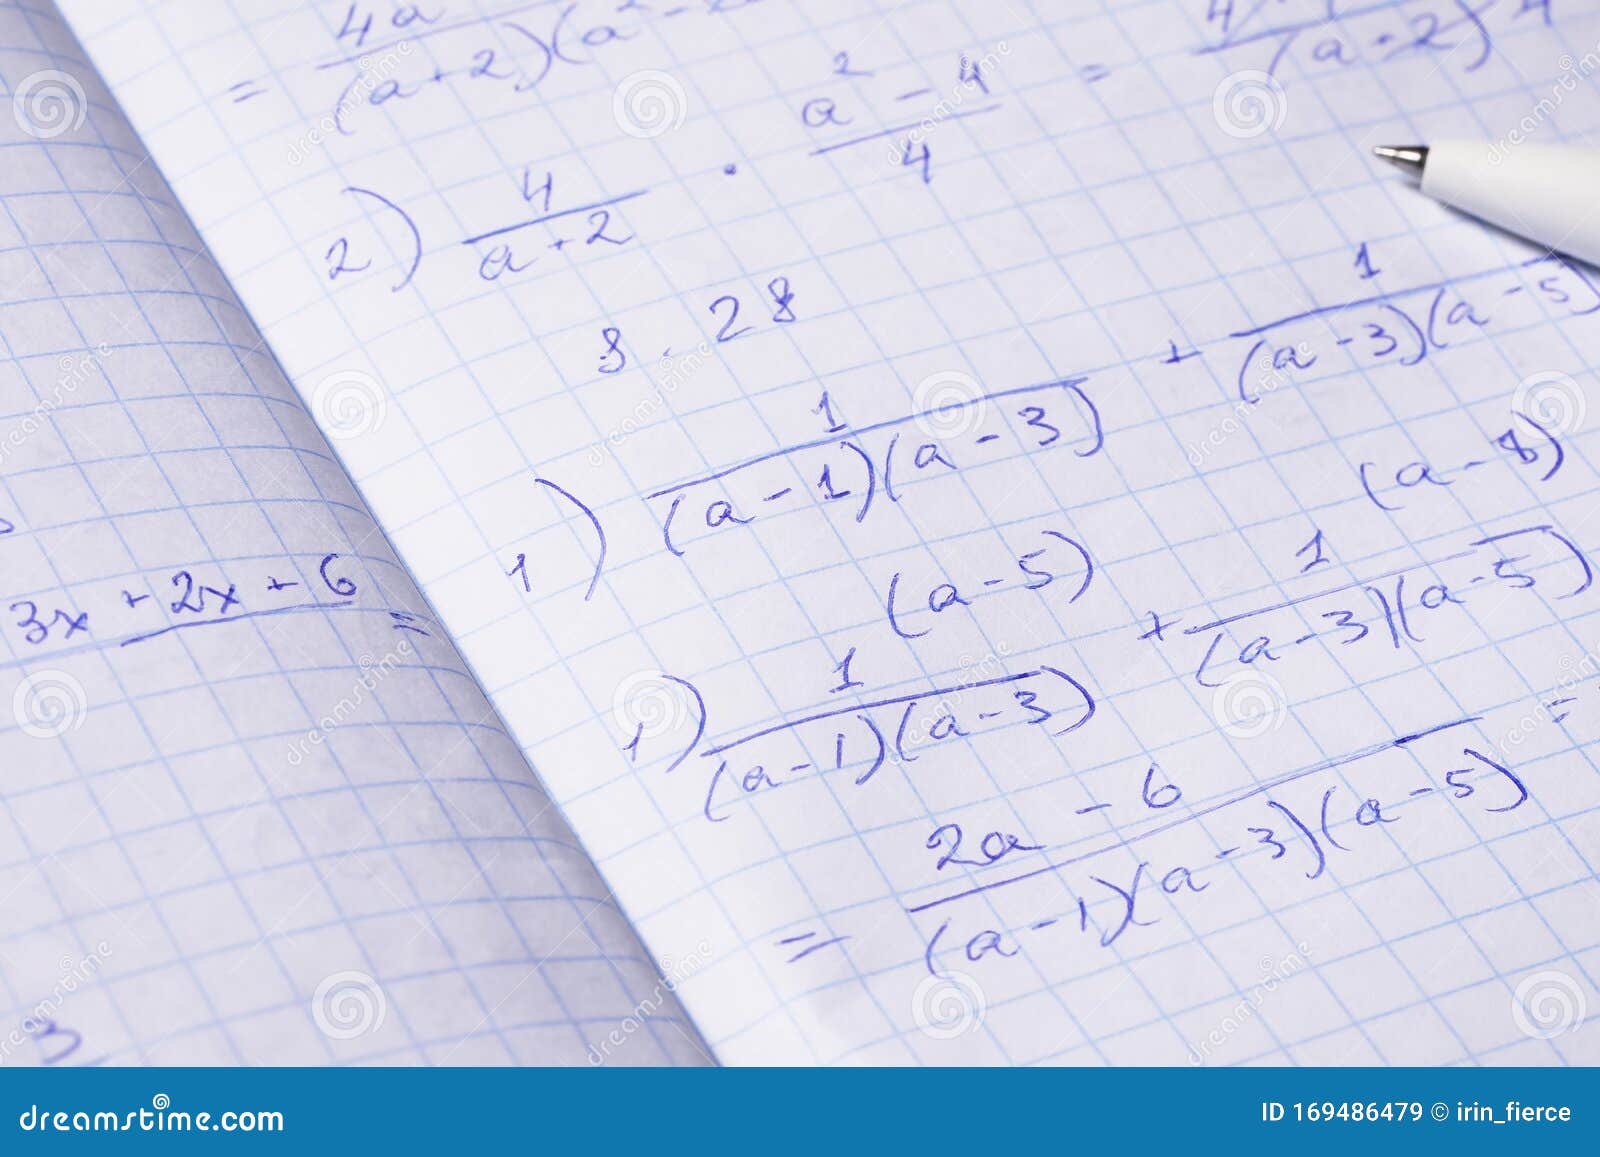 3x + 2x + 6 =
3
= 4a / (a+2)(a²-2
2) 4/(a+2) · (a²-4)/4 = 4 / (a+2) 4
8.28
1) 1/((a-1)(a-3)) + 1/((a-3)(a-5)
(a-5) (a-8)
1) 1/((a-1)(a-3)) + 1/((a-3)(a-5)) =
= (2a-6)/((a-1)(a-3)(a-5))
dreamstime.com
ID 169486479 © irin_fierce